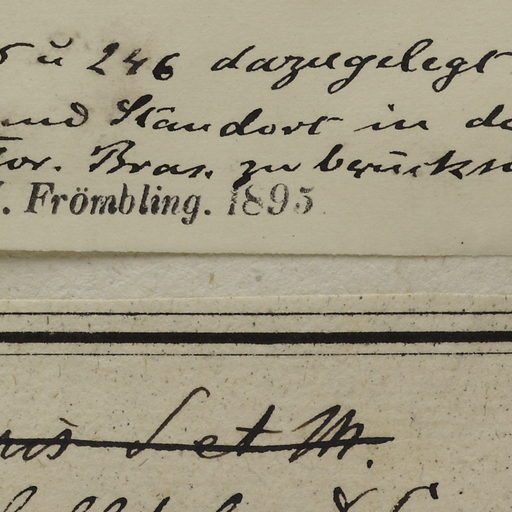 u 246 dazugelegt
und Standort in de
Flor. Bras. zu berücks
. Frömbling. 1895
L et M.